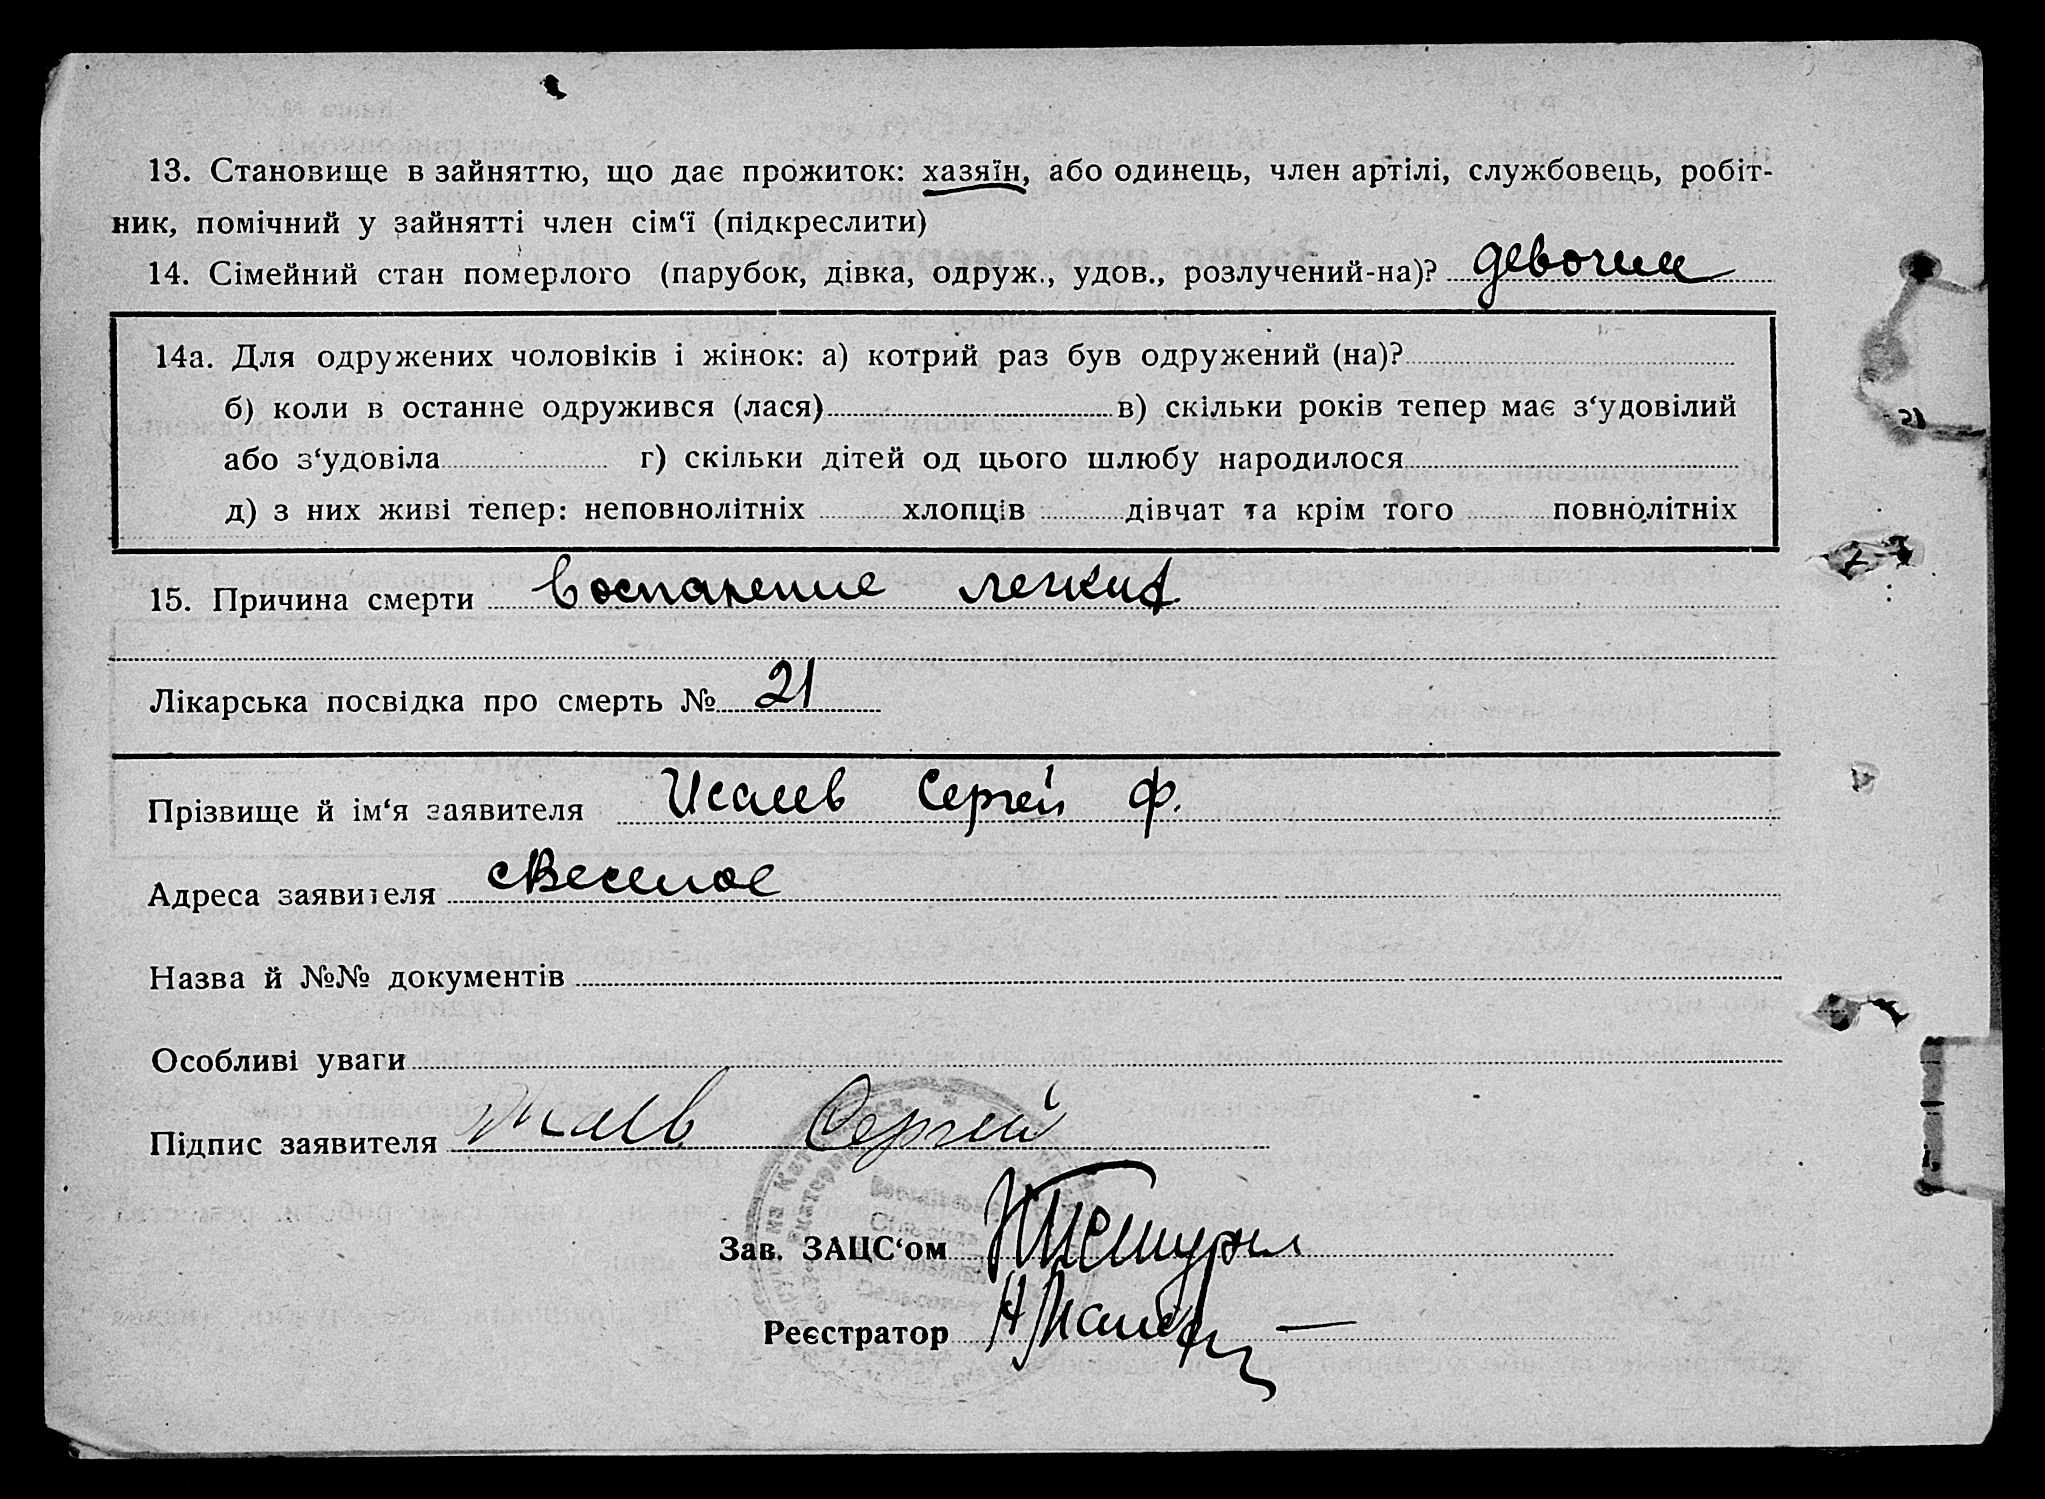 13. Становище в зайняттю, що дає прожиток: хазяїн, або одинець, член артілі, службовець, робіт-
ник, помічний у зайнятті член сім‘ї (підкреслити)
14. Сімейний стан померлого (парубок, дівка, одруж., удов., розлучений-на)?
14а. Для одружених чоловіків і жінок: а) котрий раз був одружений (на)?
б) коли в останнє одружився (лася) в) скільки років тепер має з‘удовілий
або з‘удовіла г) скільки дітей од цього шлюбу народилося
д) з них живі тепер: неповнолітніх хлопців дівчат та крім того повнолітніх
15. Причина смерти воспаление легких
Лікарська посвідка про смерть № 21
Прізвище й ім‘я заявителя Исаев Сергей Ф.
Адреса заявителя с Веселое
Назва й №№ документів
Особливі уваги
Підпис заявителя Исаев Сергей
Зав. ЗАЦС‘ом
Реєстратор